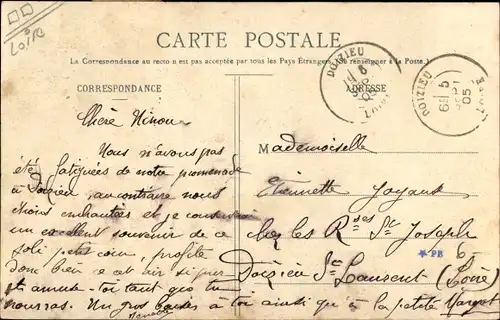 LOIRE
CARTE POSTALE
La Correspondance au recto n'est pas acceptée par tous les Pays Étrangers. (Se renseigner à la Poste.)
CORRESPONDANCE
ADRESSE
DOIZIEU
DOIZIEU
Chère Ninou
Nous n'avons pas
été fatiguées de notre promenade
à Doizieu, au contraire nous
étions enchantées et je conserverai
un excellent souvenir de ce
joli petit coin, profite
donc bien de cet air si pur
et amuse-toi tant que tu
pourras. Un gros baiser à toi ainsi qu'à la petite Margot
Mademoiselle
Etiennette
chez les Rdes St Joseph
Doizieu St Laurent (Loire)
PB
6